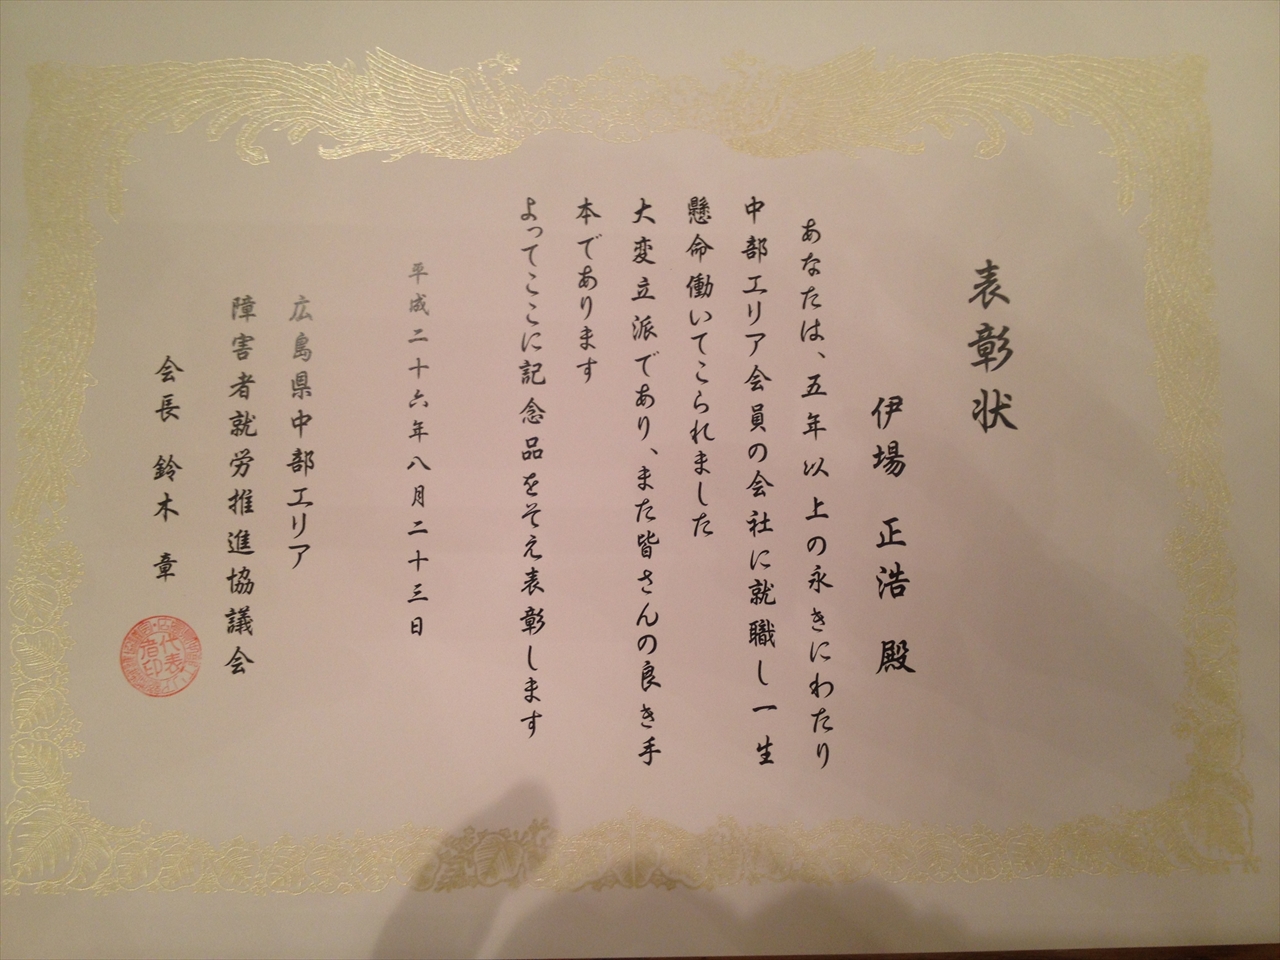 表彰状
伊場正浩殿
あなたは、五年以上の永きにわたり
中部エリア会員の会社に就職し一生
懸命働いてこられました
大変立派であり、また皆さんの良き手
本であります
よってここに記念品をそえ表彰します
平成二十六年八月二十三日
広島県中部エリア
障害者就労推進協議会
会長 鈴木章